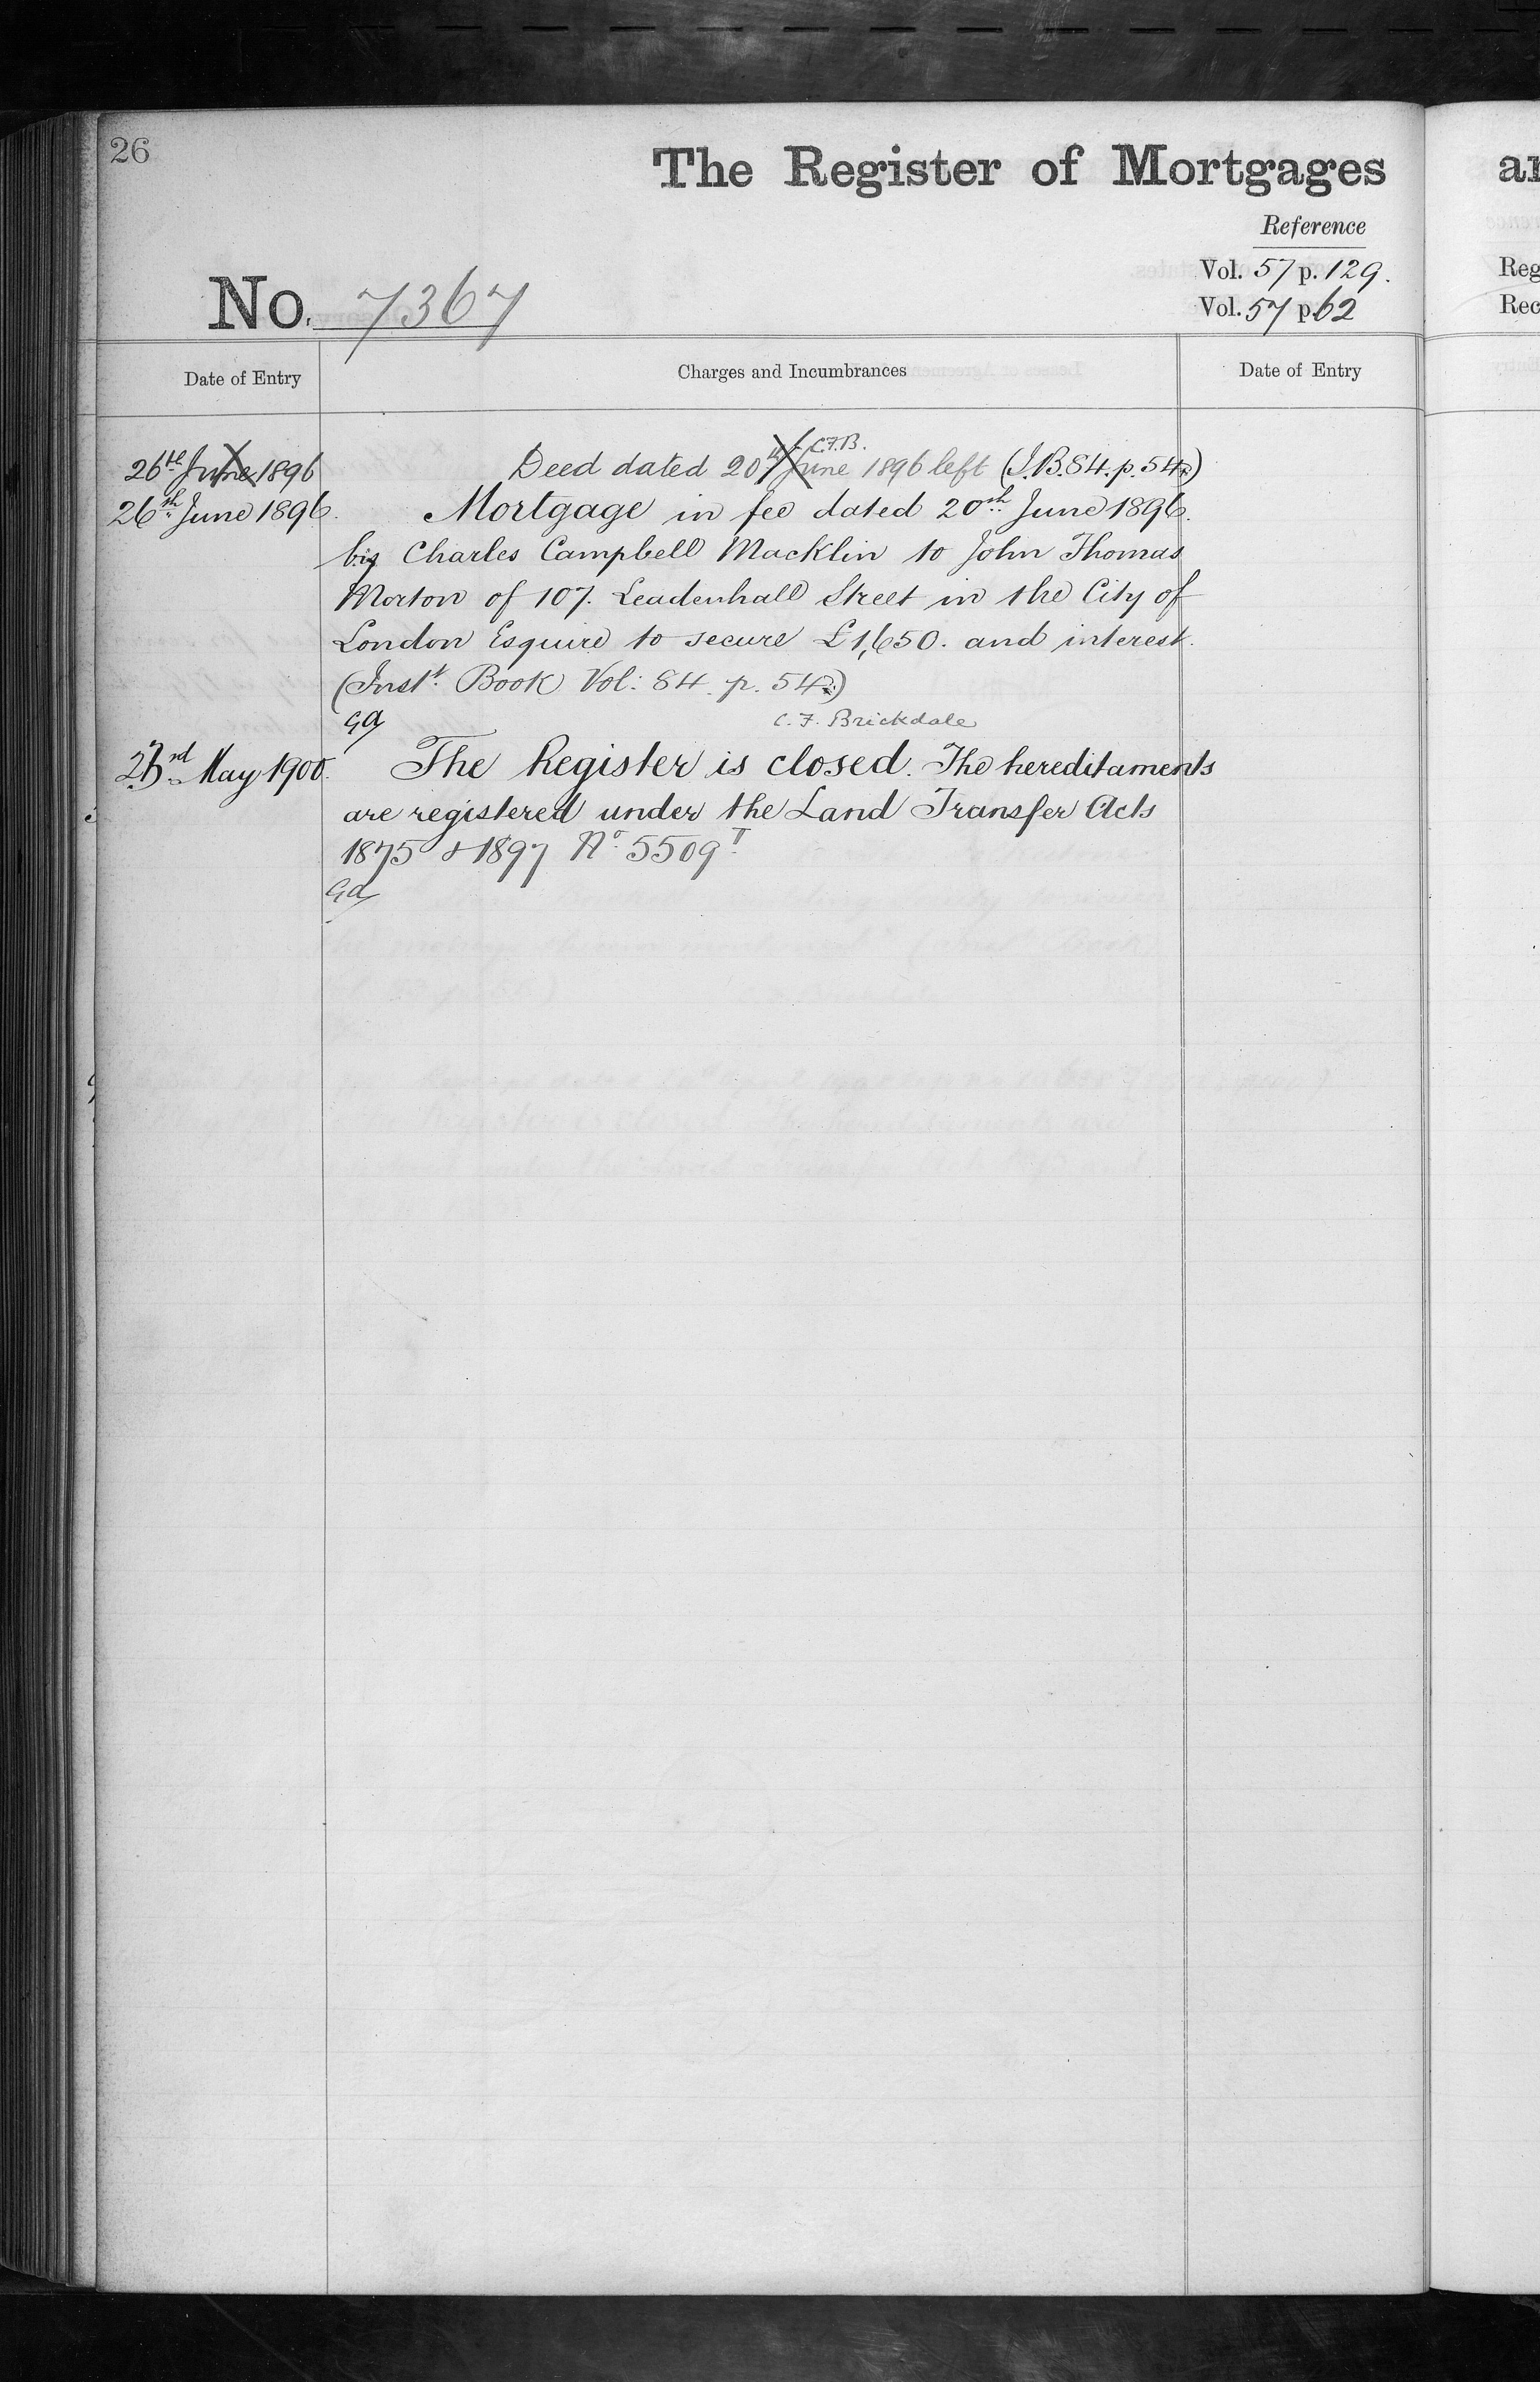 26
The Register of Mortgages
Reference
Vol. 57 p. 129.
Vol. 57 p. 62
No. 7367
Date of Entry
Charges and Incumbrances
Date of Entry
C.F.B.
26th June 1896 Deed dated 20th June 1896 left (I.B. 84. p. 54)
26th June 1896. Mortgage in fee dated 20th June 1896.
by Charles Campbell Macklin to John Thomas
Morton of 107. Leadenhall Street in the City of
London Esquire to secure £1,650. and interest.
(Inst. Book Vol: 84. p. 54)
Ga C. F. Brickdale
23rd May 1900. The Register is closed. The hereditaments
are registered under the Land Transfer Acts
1875 & 1897 No 5509
Ga
an
Reg
Rec